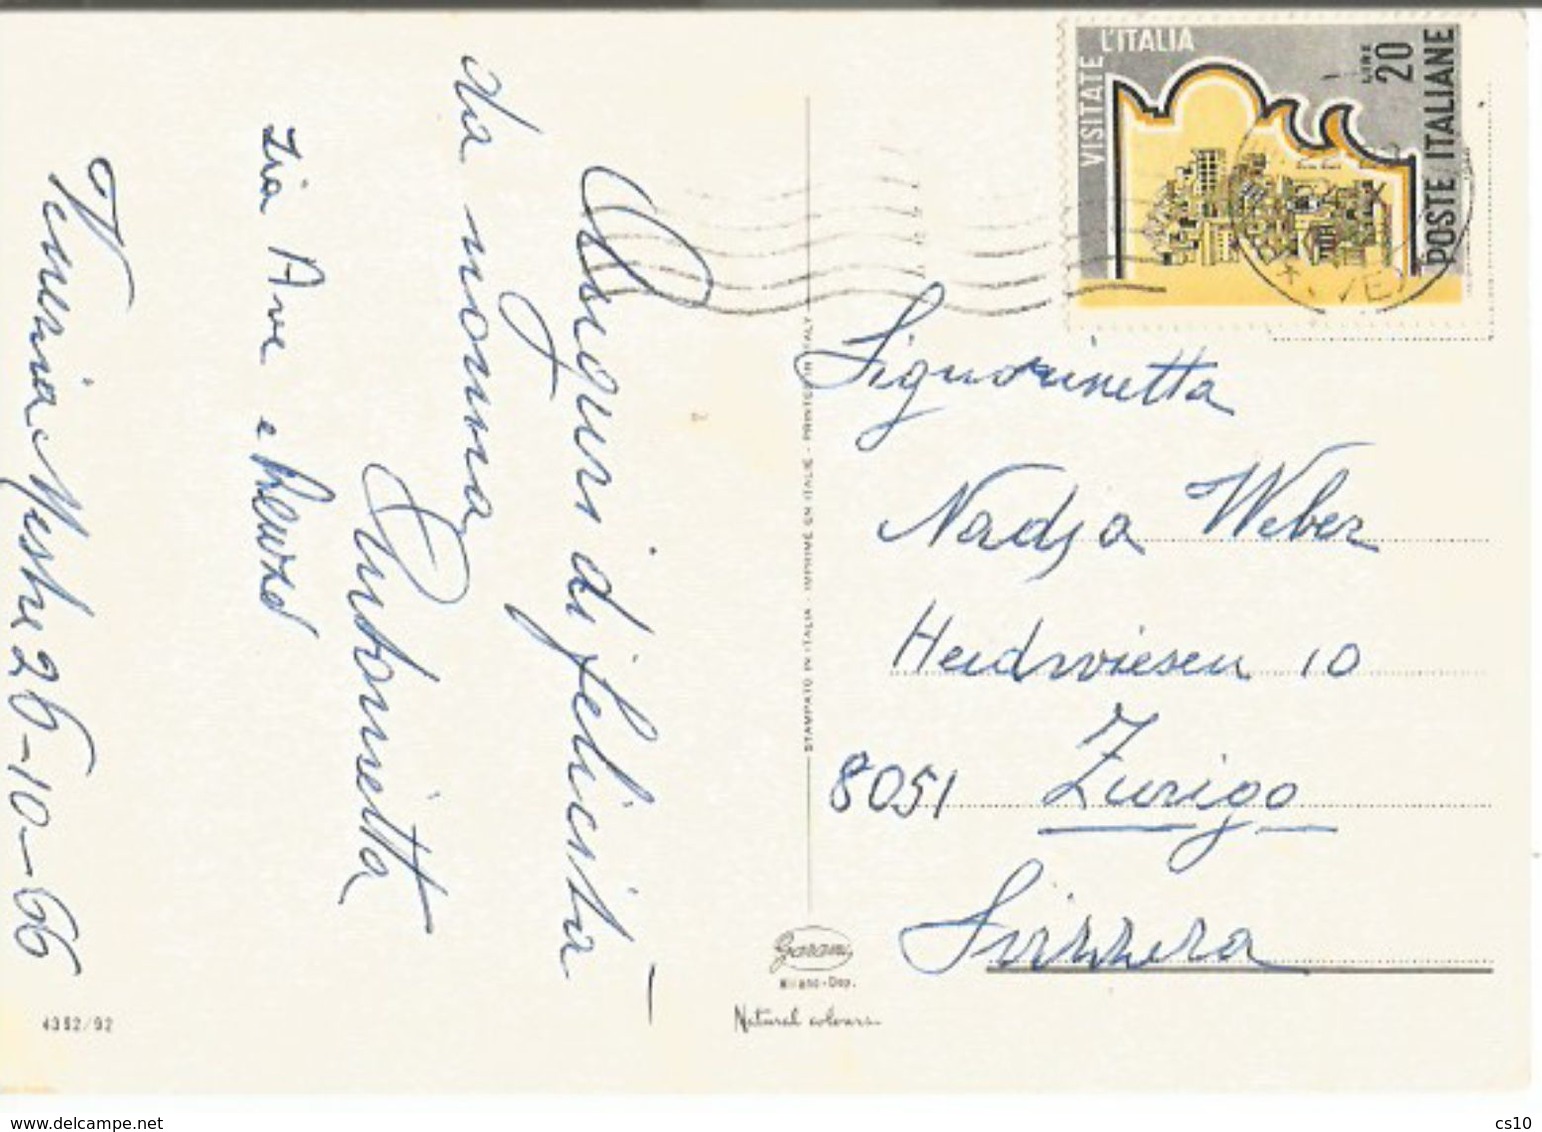 Venezia Mestre 26-10-66
Auguri di felicità
da nonna
Antonietta
zia Ave e
VISITATE L'ITALIA
LIRE 20
POSTE ITALIANE
Signorinetta
Nadja Weber
Heidwiesen 10
8051 Zurigo
Svizzera
STAMPATO IN ITALIA - IMPRIMÉ EN ITALIE - PRINTED IN ITALY
Garami
Milano-Dep.
Natural colours.
4352/92
www.delcampe.net
cs10